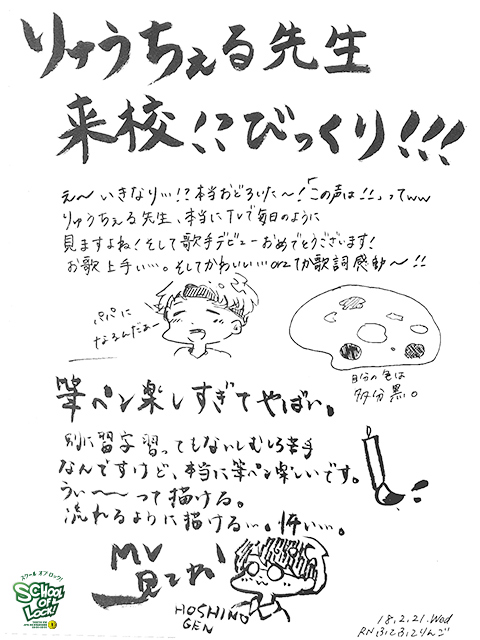 りゅうちぇる先生
来校!?びっくり!!!
え〜いきなり…!?本当おどろいた〜!「この声は!!」ってww
りゅうちぇる先生、本当にTVで毎日のように
見ますよね!そして歌手デビューおめでとうございます!
お歌上手い…。そしてかわいい…orzてか歌詞感動〜!!
パパに
なるんだぁー
自分の色は
多分黒。
筆ペン楽しすぎてやばい。
別に習字習ってもないしむしろ苦手
なんですけど、本当に筆ペン楽しいです。
うぃ〜〜って描ける。
流れるように描ける…。怖い…。
MV
見てね!
HOSHINO
GEN
スクールオブロック!
SCHOOL
OF
LOCK!
18.2.21.Wed
RNふじふじりんご